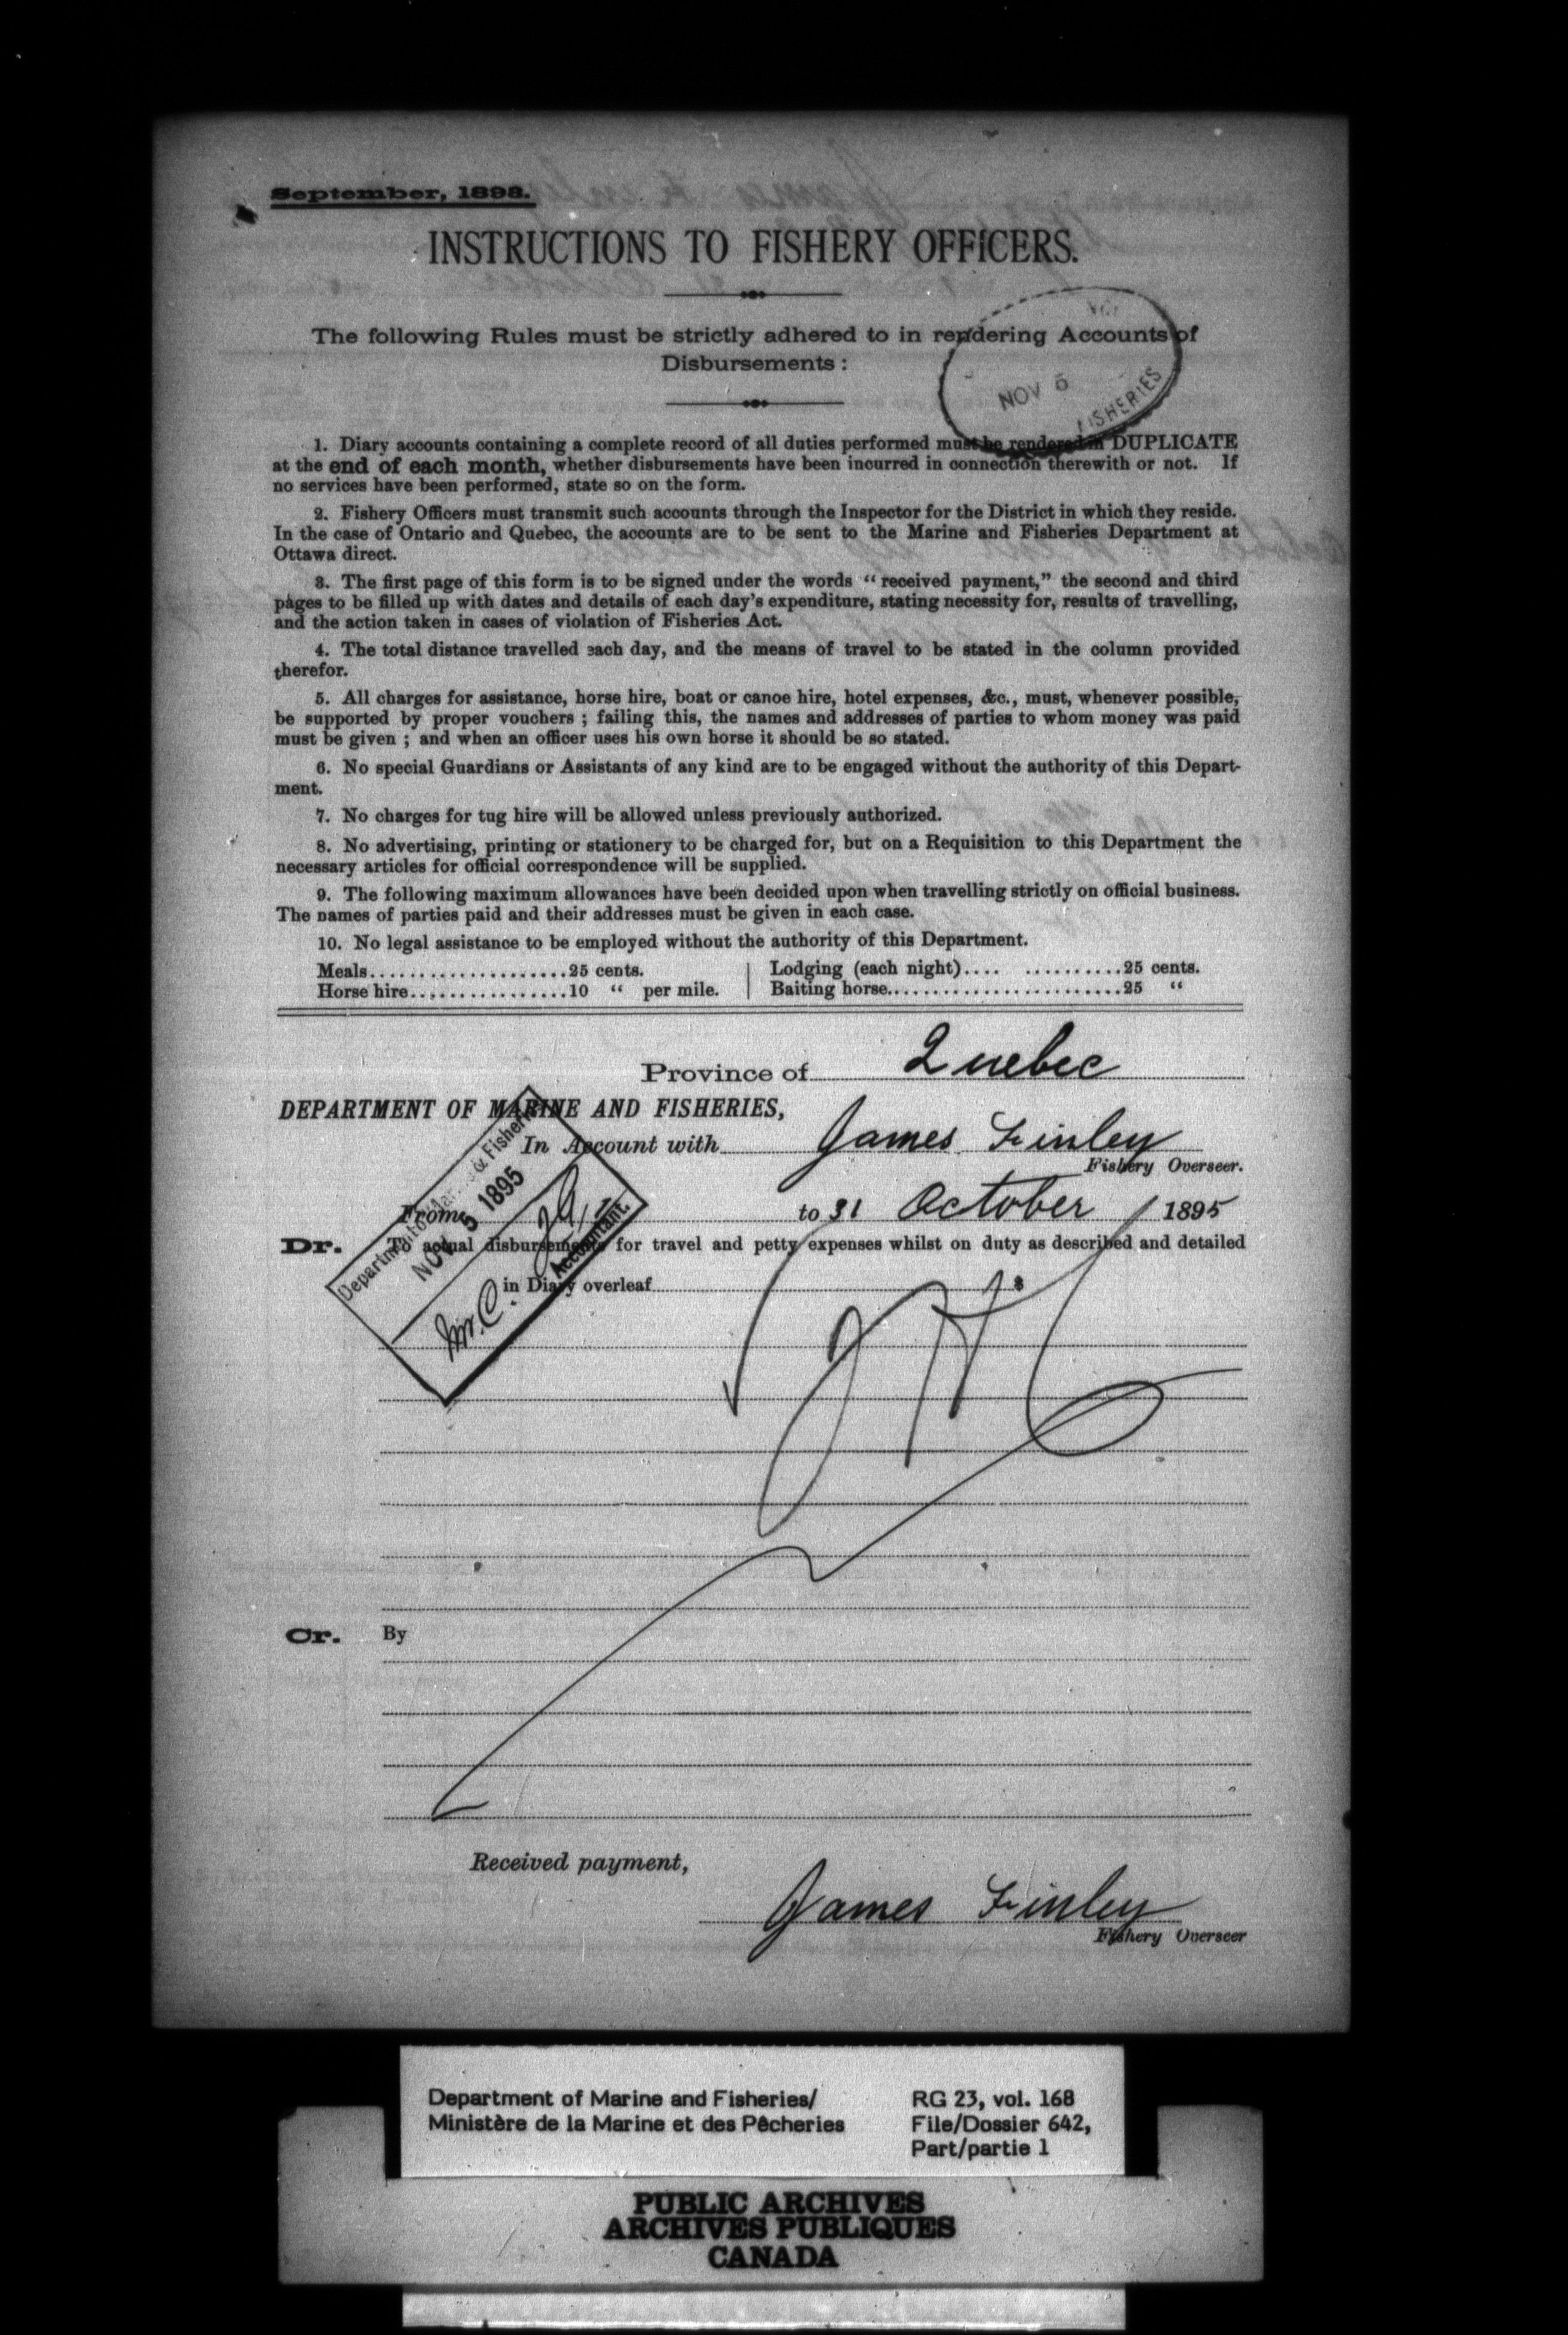 September, 1893.
INSTRUCTIONS TO FISHERY OFFICERS.
The following Rules must be strictly adhered to in rendering Accounts of
Disbursements :
NOV 5
FISHERIES
1. Diary accounts containing a complete record of all duties performed must be rendered in DUPLICATE
at the end of each month, whether disbursements have been incurred in connection therewith or not. If
no services have been performed, state so on the form.
2. Fishery Officers must transmit such accounts through the Inspector for the District in which they reside.
In the case of Ontario and Quebec, the accounts are to be sent to the Marine and Fisheries Department at
Ottawa direct.
3. The first page of this form is to be signed under the words “ received payment,” the second and third
pages to be filled up with dates and details of each day's expenditure, stating necessity for, results of travelling,
and the action taken in cases of violation of Fisheries Act.
4. The total distance travelled each day, and the means of travel to be stated in the column provided
therefor.
5. All charges for assistance, horse hire, boat or canoe hire, hotel expenses, &c., must, whenever possible,
be supported by proper vouchers ; failing this, the names and addresses of parties to whom money was paid
must be given ; and when an officer uses his own horse it should be so stated.
6. No special Guardians or Assistants of any kind are to be engaged without the authority of this Depart-
ment.
7. No charges for tug hire will be allowed unless previously authorized.
8. No advertising, printing or stationery to be charged for, but on a Requisition to this Department the
necessary articles for official correspondence will be supplied.
9. The following maximum allowances have been decided upon when travelling strictly on official business.
The names of parties paid and their addresses must be given in each case.
10. No legal assistance to be employed without the authority of this Department.
Meals....................25 cents. Lodging (each night).... ..........25 cents.
Horse hire................10 “ per mile. Baiting horse........................25 “
Province of Quebec
DEPARTMENT OF MARINE AND FISHERIES,
In Account with James Finley
Fishery Overseer.
From to 31 October 1895
Dr. To actual disbursements for travel and petty expenses whilst on duty as described and detailed
in Diary overleaf $
NOV 5 1895
Accountant.
Cr. By
Received payment,
James Finley
Fishery Overseer
Department of Marine and Fisheries/ RG 23, vol. 168
Ministère de la Marine et des Pêcheries File/Dossier 642,
Part/partie 1
PUBLIC ARCHIVES
ARCHIVES PUBLIQUES
CANADA